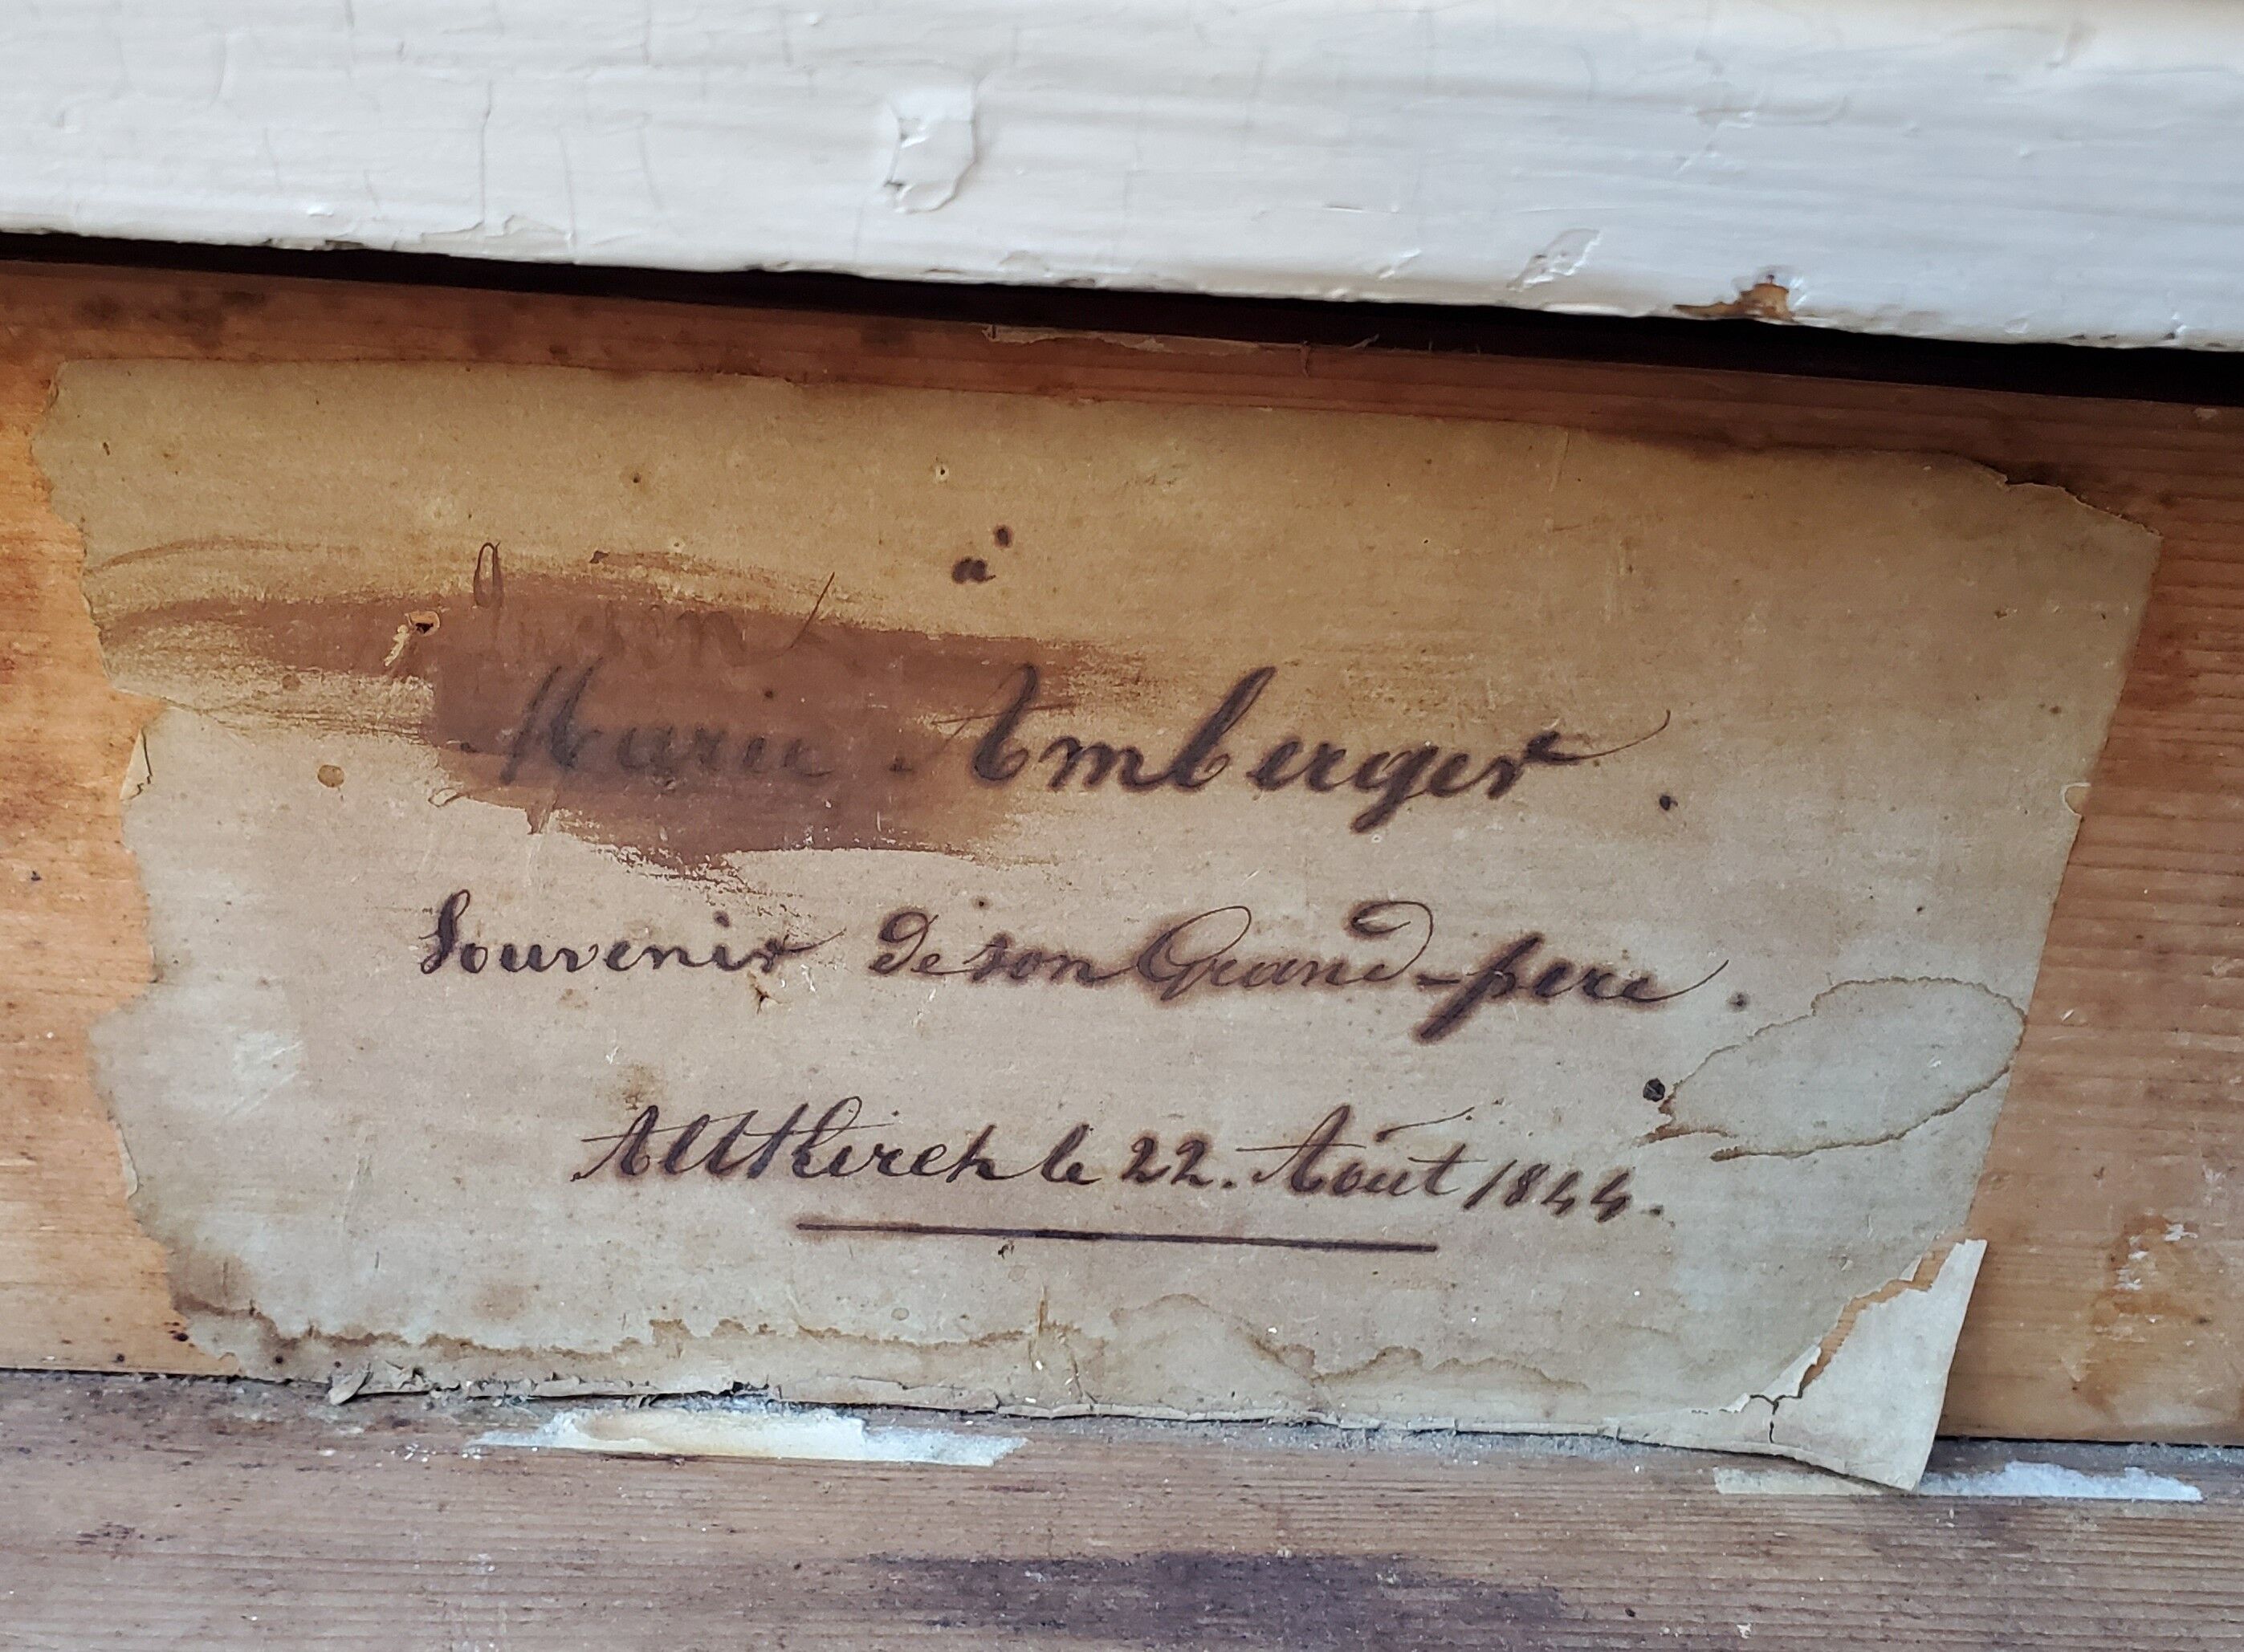 à
Marie Amberger.
Souvenir de son Grand-pere.
Altkirch le 22. Août 1844.